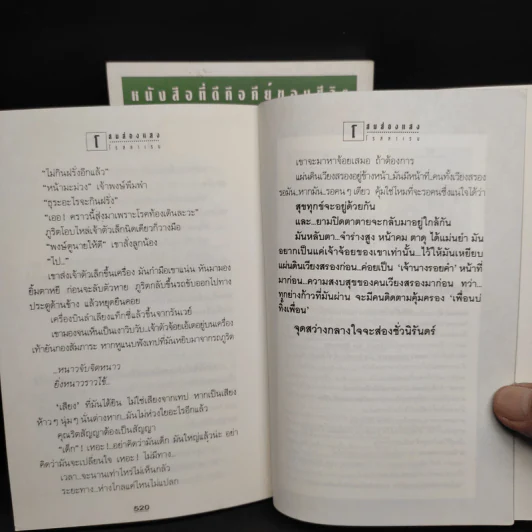 หนังสือที่ดีคือ
"ไม่กินฝรั่งอีกแล้ว"
"หน้ามะม่วง" เจ้าพงษ์พึมพำ
"ธุระอะไรจะกินฝรั่ง"
"เออ! คราวนี้ส่งมาเพราะโรคท้องเดินละวะ"
ภูริตโอบไหล่เจ้าตัวเล็กนิดเดียวก็วางมือ
"พงษ์ดูนายให้ดี" เขาสั่งลูกน้อง
"ไป.."
เขาส่งเจ้าตัวเล็กขึ้นเครื่อง มันกำมือเขาแน่น หันมามอง
ยิ้มตาหยี ก่อนจะลับตัวหาย ภูริตกลับขึ้นรถขับออกไปทาง
ประตูด้านข้าง แล้วหยุดยืนคอย
เครื่องบินลำเลียงแท็กซี่แล้วขึ้นจากรันเวย์
เขามองจนเห็นเป็นเงาวิบวับ..
เท้ายันกองสัมภาระ หากหูแนบฟังเทปที่มันหยิบมาจากรถภูริต
..หนาวจับจิตหนาว
ยังหนาวราวไข้..
"เสียง" ที่มันได้ยิน ไม่ใช่เสียงจากเทป หากเป็นเสียง
ห้าวๆ นุ่มๆ นั่นต่างหาก..มันไม่ห่วงใยอะไรอีกแล้ว
คุณริตสัญญาต้องเป็นสัญญา
"เด็ก"! เหอะ!..อย่าคิดว่ามันเด็ก มันใหญ่แล้วน่ะ อย่า
คิดว่ามันจะเปลี่ยนใจ เหอะ! ไม่มีทาง..
เวลา..จะนานเท่าไหร่ไม่เห็นกลัว
ระยะทาง..ห่างไกลแค่ไหนไม่แปลก
520
เขาจะมาหาจ้อยเสมอ ถ้าต้องการ
แผ่นดินเวียงสรองอยู่ข้างหน้า..มันมีหน้าที่..คนทั้งเวียงสรอง
รอมัน..หากมัน..รอคนๆ เดียว คุ้มใช่ไหมที่จะรอคนซึ่งแน่ใจได้ว่า
สุขทุกข์จะอยู่ด้วยกัน
และ..ยามปิดตาตายจะกลับมาอยู่ใกล้กัน
มันหลับตา..จำร่างสูง หน้าคม ตาดุ ได้แม่นยำ มัน
อยากเป็นแค่เจ้าจ้อยของเขาเท่านั้น..ไว้ให้มันเหยียบ
แผ่นดินเวียงสรองก่อน..ค่อยเป็น 'เจ้านางรอยคำ' หน้าที่
มาก่อน..ความสงบสุขของคนเวียงสรองมาก่อน ทว่า..
ทุกย่างก้าวที่มันผ่าน จะมีคนติดตามคุ้มครอง 'เพื่อนบ่
ทิ้งเพื่อน'
จุดสว่างกลางใจจะส่องชั่วนิรันดร์